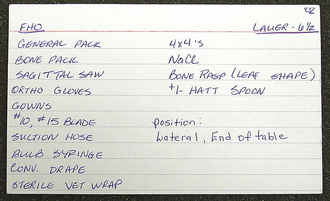 FHO
LAUER - 6½
GENERAL PACK
BONE PACK
SAGITTAL SAW
ORTHO GLOVES
GOWNS
#10, #15 BLADE
SUCTION HOSE
BULB SYRINGE
CONV. DRAPE
STERILE VET WRAP
4x4's
NaCl
BONE RASP (LEAF SHAPE)
+/- HATT SPOON
position:
Lateral, End of table